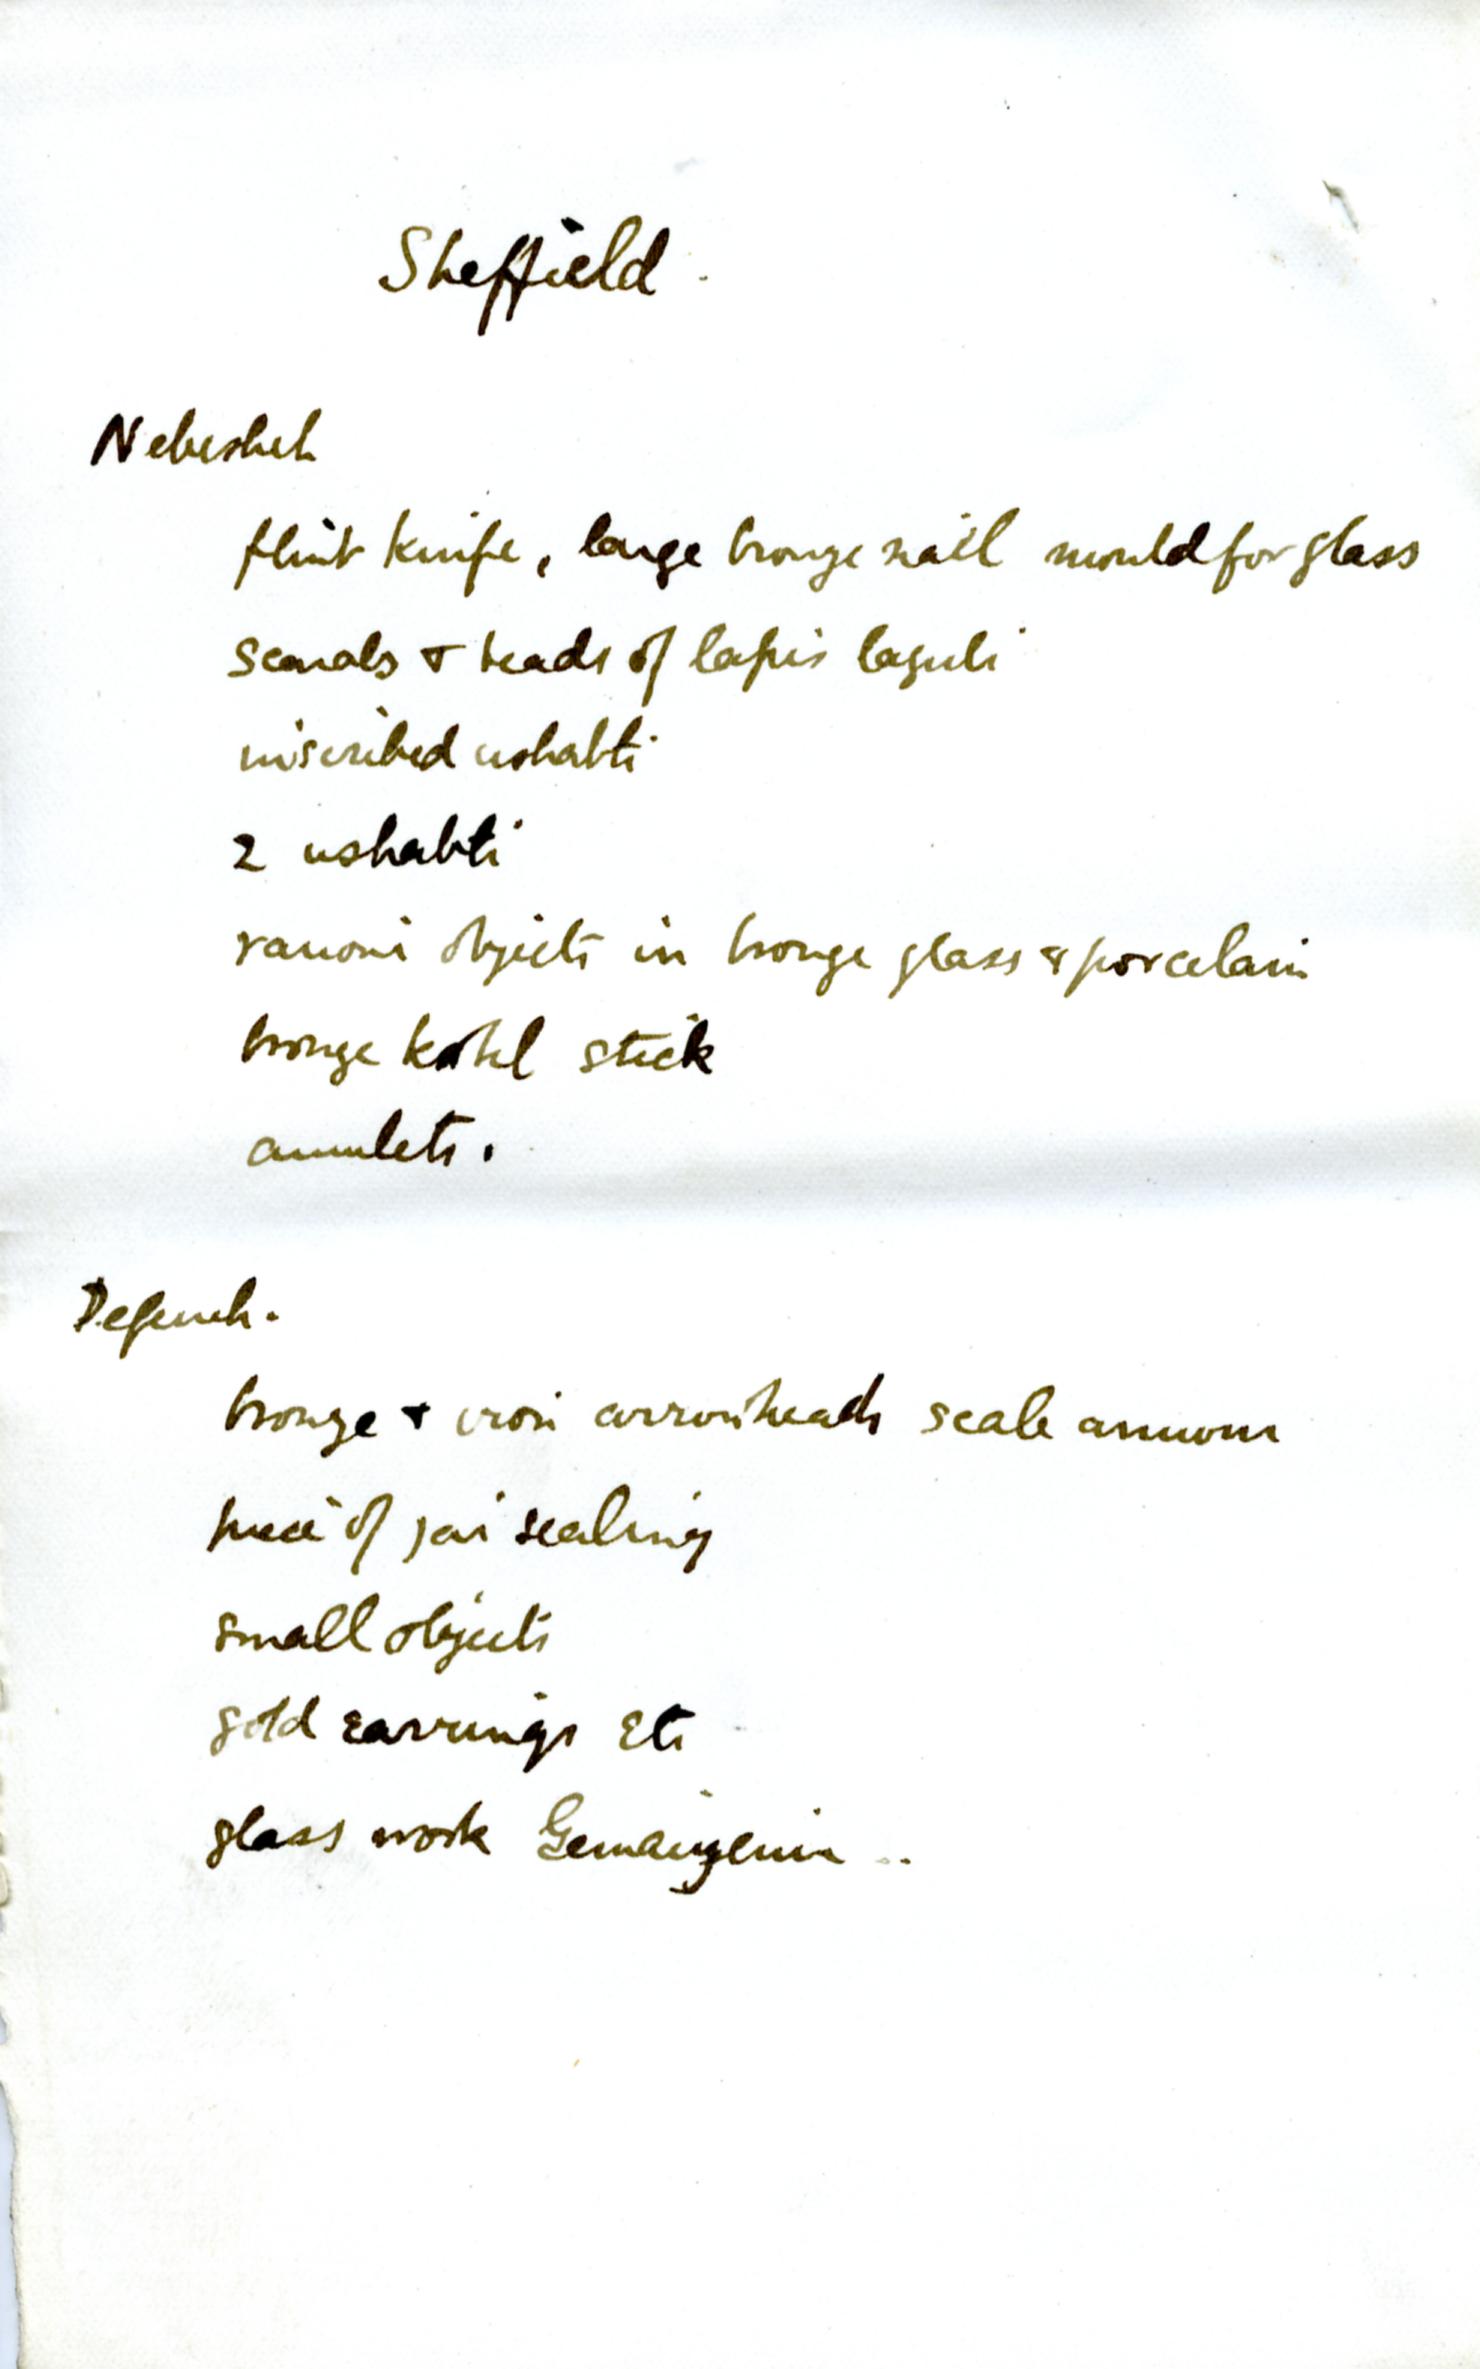 Sheffield.
Nebesheh
flint knife, large bronze nail mould for glass
scarabs + beads of lapis lazuli
inscribed ushabti
2 ushabti
various objects in bronze glass & porcelain
bronze kohl stick
amulets.
Defeneh.
bronze + iron arrowheads scale armour
piece of jar sealing
small objects
gold earrings etc
glass work Gemaiyemi ..